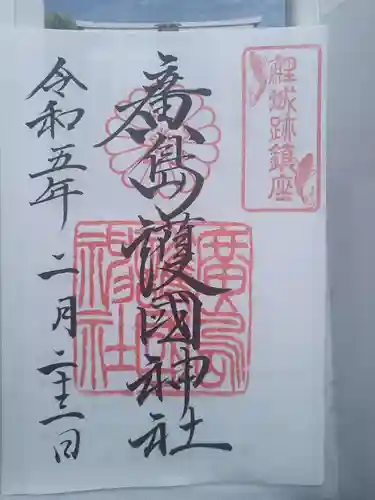 鯉城跡鎮座
廣島護國神社
廣島護國神社
令和五年 二月二十二日